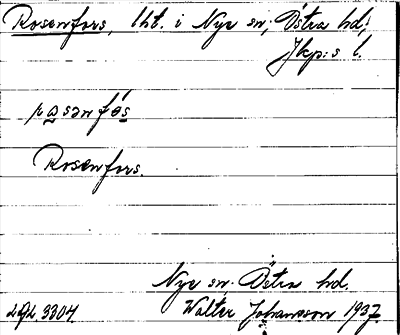 Rosenfors, lht. i Nye sn, Östra hd;
Jkp:s l.
rosənfǫs
Rosenfors.
Nye sn. Östra hd.
Walter Johansson 1937